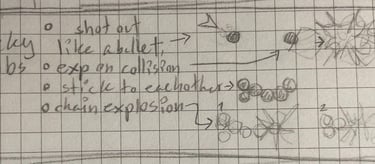 shot out
ky like a bullet,
bs exp on collision
stick to eachother
chain explosion
1 2